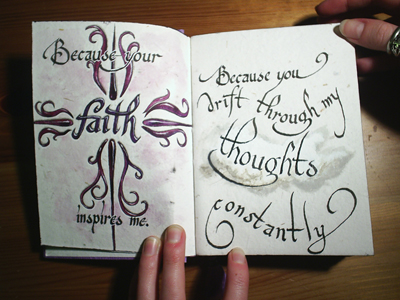 Because your
faith
inspires me.
Because you
drift through my
thoughts
constantly